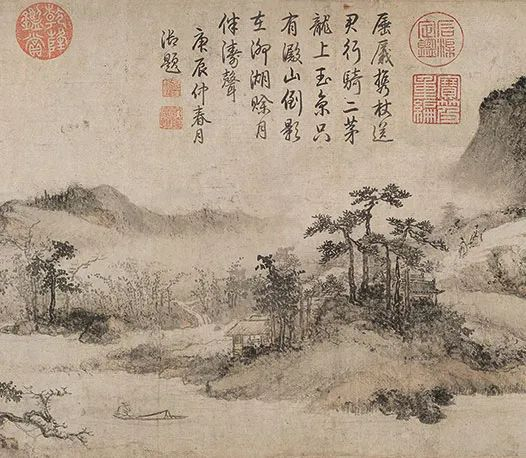 層巖携杖送
君行騎二茅
龍上玉京只
有澱山倒影
在泖湖賒月
伴濤聲
庚辰仲春月
御題
石渠定鑑
寶笈重編
乾隆鑑賞